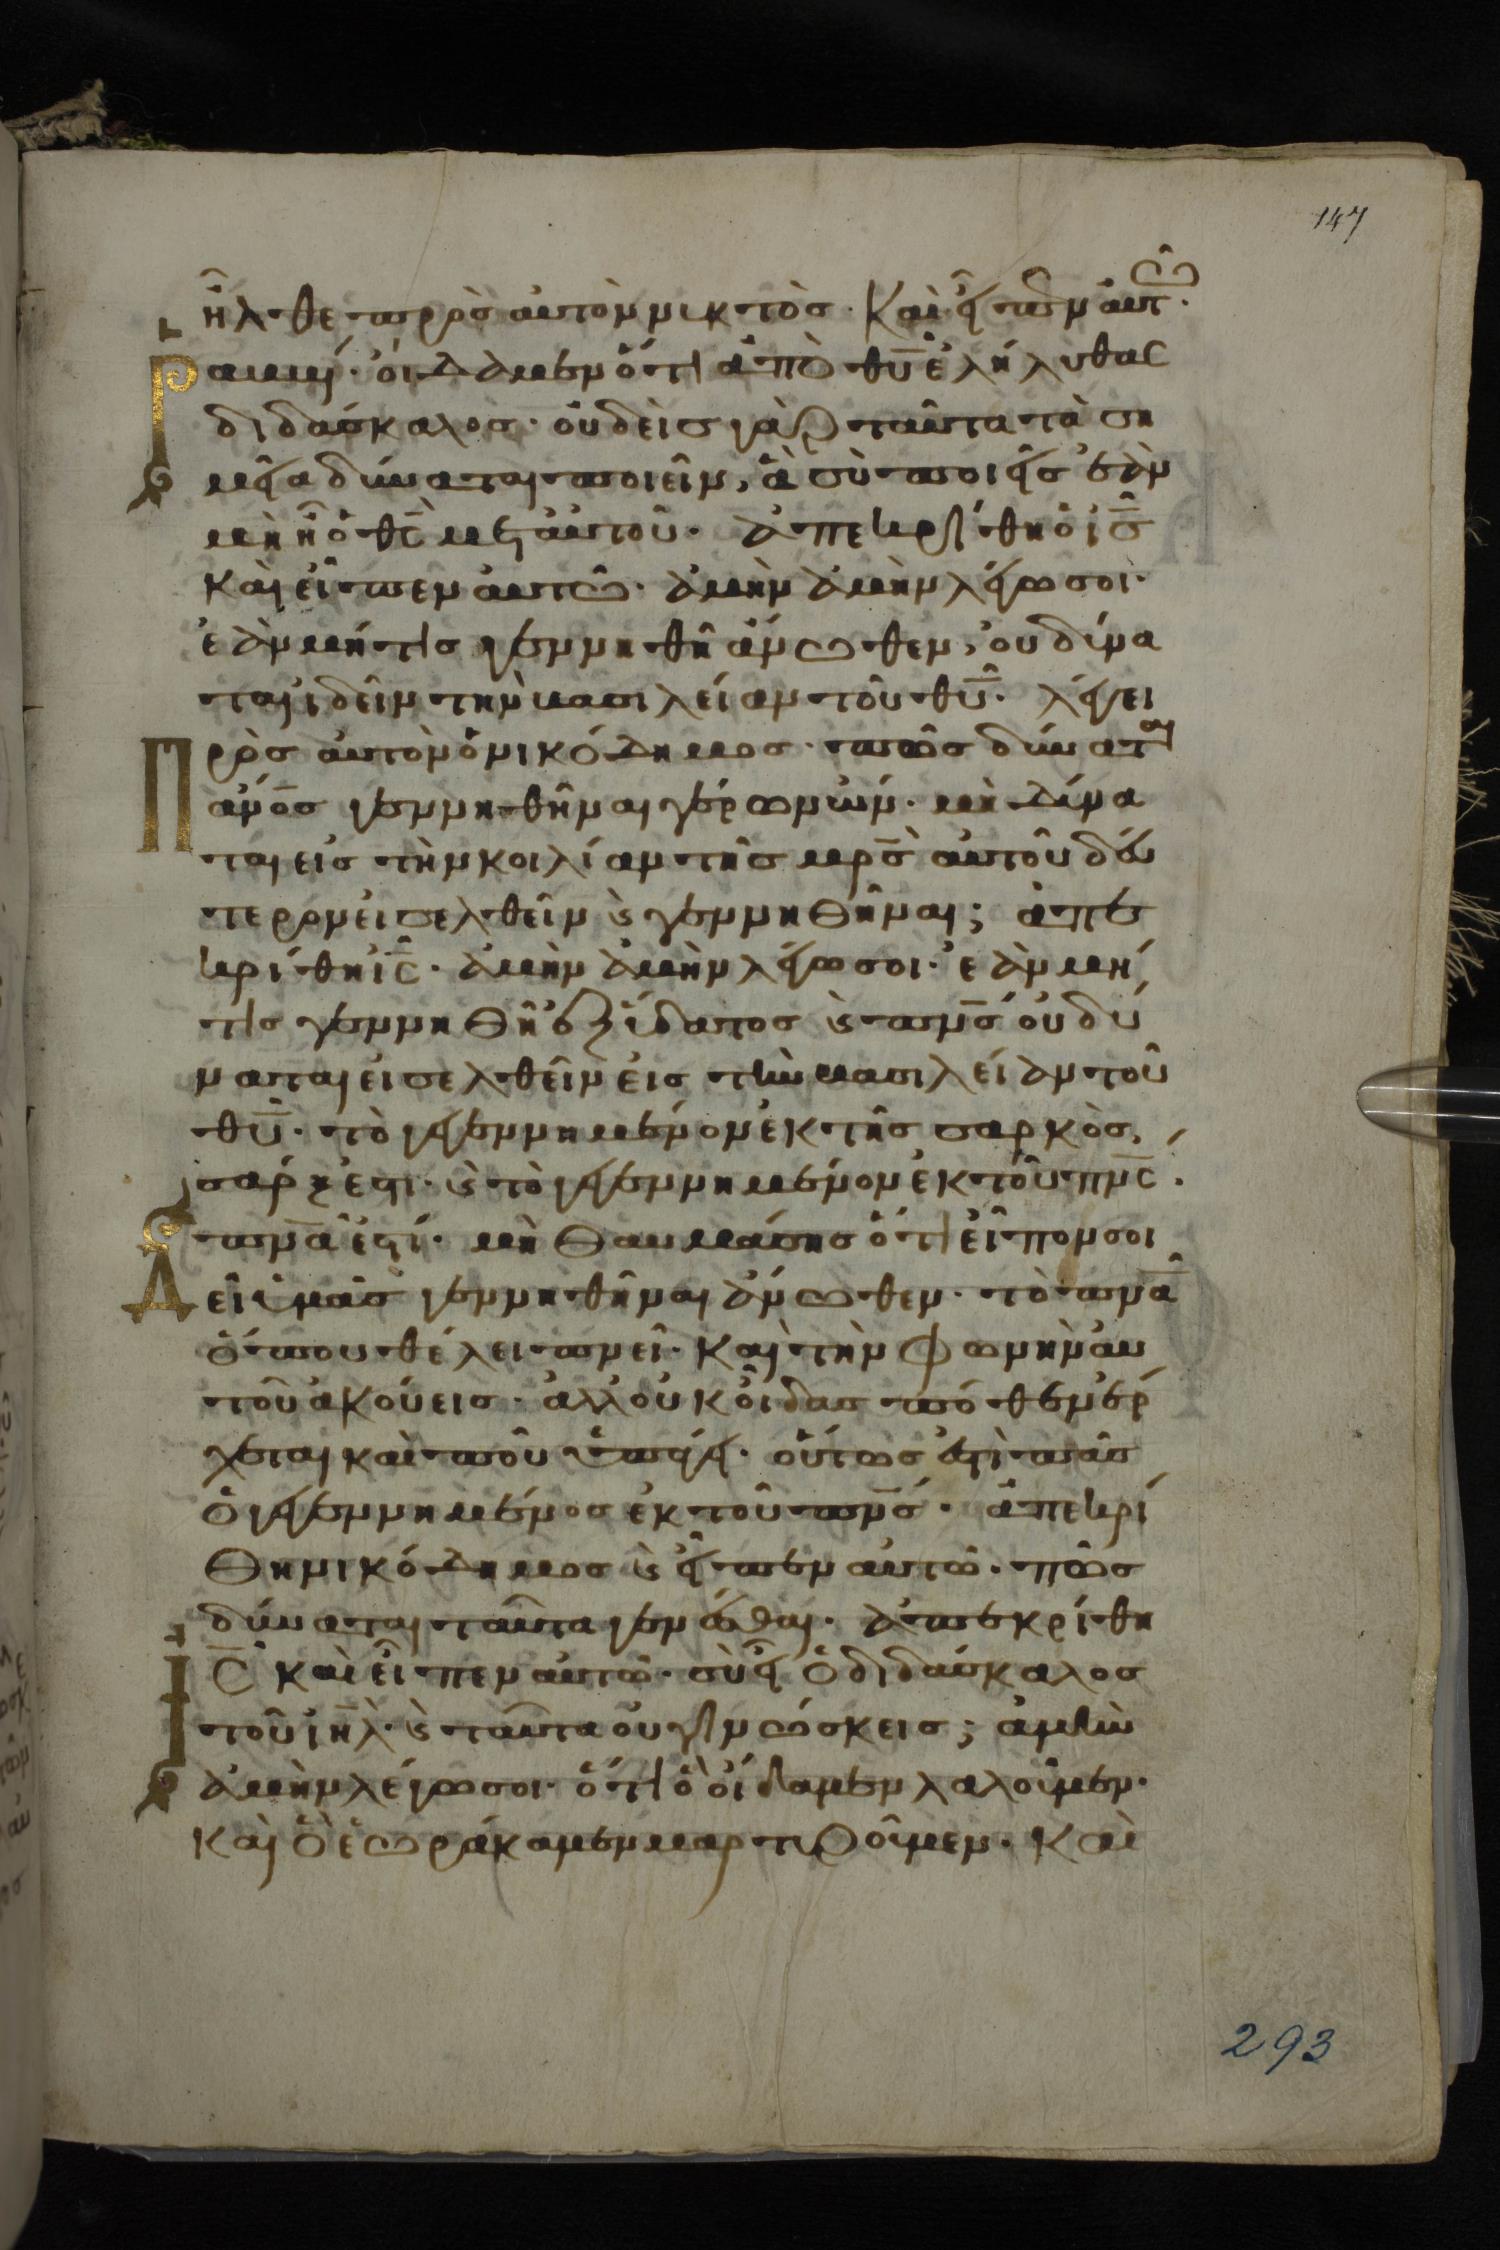 147
ἦλθε πρὸς αὐτὸν νυκτὸς· Καὶ εἶπεν αὐτῶ·
Ραββί· οἴδαμεν ὅτι ἀπὸ θῡ ἐλήλυθας
διδάσκαλος· οὐδεὶς γὰρ ταῦτα τὰ ση
μεῖα δύναται ποιεῖν, ἃ σὺ ποιεῖς ἐὰν
μὴ ἦ ὁ θς̄ μετ αὐτοῦ· ἀπεκρίθη ὁ ις̄
καὶ εἶπεν αὐτῶ· ἀμὴν ἀμὴν λέγω σοι·
ἐὰν μή τις γεννηθῆ ἄνωθεν, οὐ δύνα
ται ἰδεῖν τὴν βασιλείαν τοῦ θῡ· λέγει
Πρὸς αὐτὸν ὁ νικόδημος· πῶς δύναται
ἀνο̄ς γεννηθῆναι γέρων ὤν· μὴ δύνα
ται εἰς τὴν κοιλίαν τῆς μρ̄ς αὐτοῦ δεύ
τερον εἰσελθεῖν ϗ γεννηθῆναι; ἀπε
κρίθη ις̄· ἀμὴν ἀμὴν λέγω σοι· ἐὰν μή
τις γεννηθῆ ἐξ ὕδατος ϗ πν̄ς οὐ δύ
ναται εἰσελθεῖν εἰς τὴν βασιλείαν τοῦ
θῡ· τὸ γεγεννημένον ἐκ τῆς σαρκὸς,
σάρξ ἐστι· ϗ τὸ γεγεννημένον ἐκ τοῦ πν̄ς·
πνᾱ ἐστί· μὴ θαυμάσης ὅτι εἶπον σοι
Δεῖ ὑμᾶς γεννηθῆναι ἄνωθεν· τὸ πνᾱ
ὅπου θέλει πνεῖ· καὶ τὴν φωνὴν αὐ
τοῦ ἀκούεις· ἀλλ' οὐκ οἶδας πόθεν ἔρ
χεται καὶ ποῦ ὑπάγει· οὕτως ἐστὶ πᾶς
ὁ γεγεννημένος ἐκ τοῦ πν̄ς· ἀπεκρί
θη νικόδημος ϗ εἶπεν αὐτῶ· πῶς
δύναται ταῦτα γενέσθαι· ἀπεκρίθη
Ις̄ καὶ εἶπεν αὐτῶ· σὺ εἶ ὁ διδάσκαλος
τοῦ ιηλ̄· ϗ ταῦτα οὐ γινώσκεις; ἀμὴν
ἀμὴν λέγω σοι· ὅτι ὃ οἴδαμεν λαλοῦμεν·
καὶ ὃ ἑωράκαμεν μαρτυροῦμεν· Καὶ
293